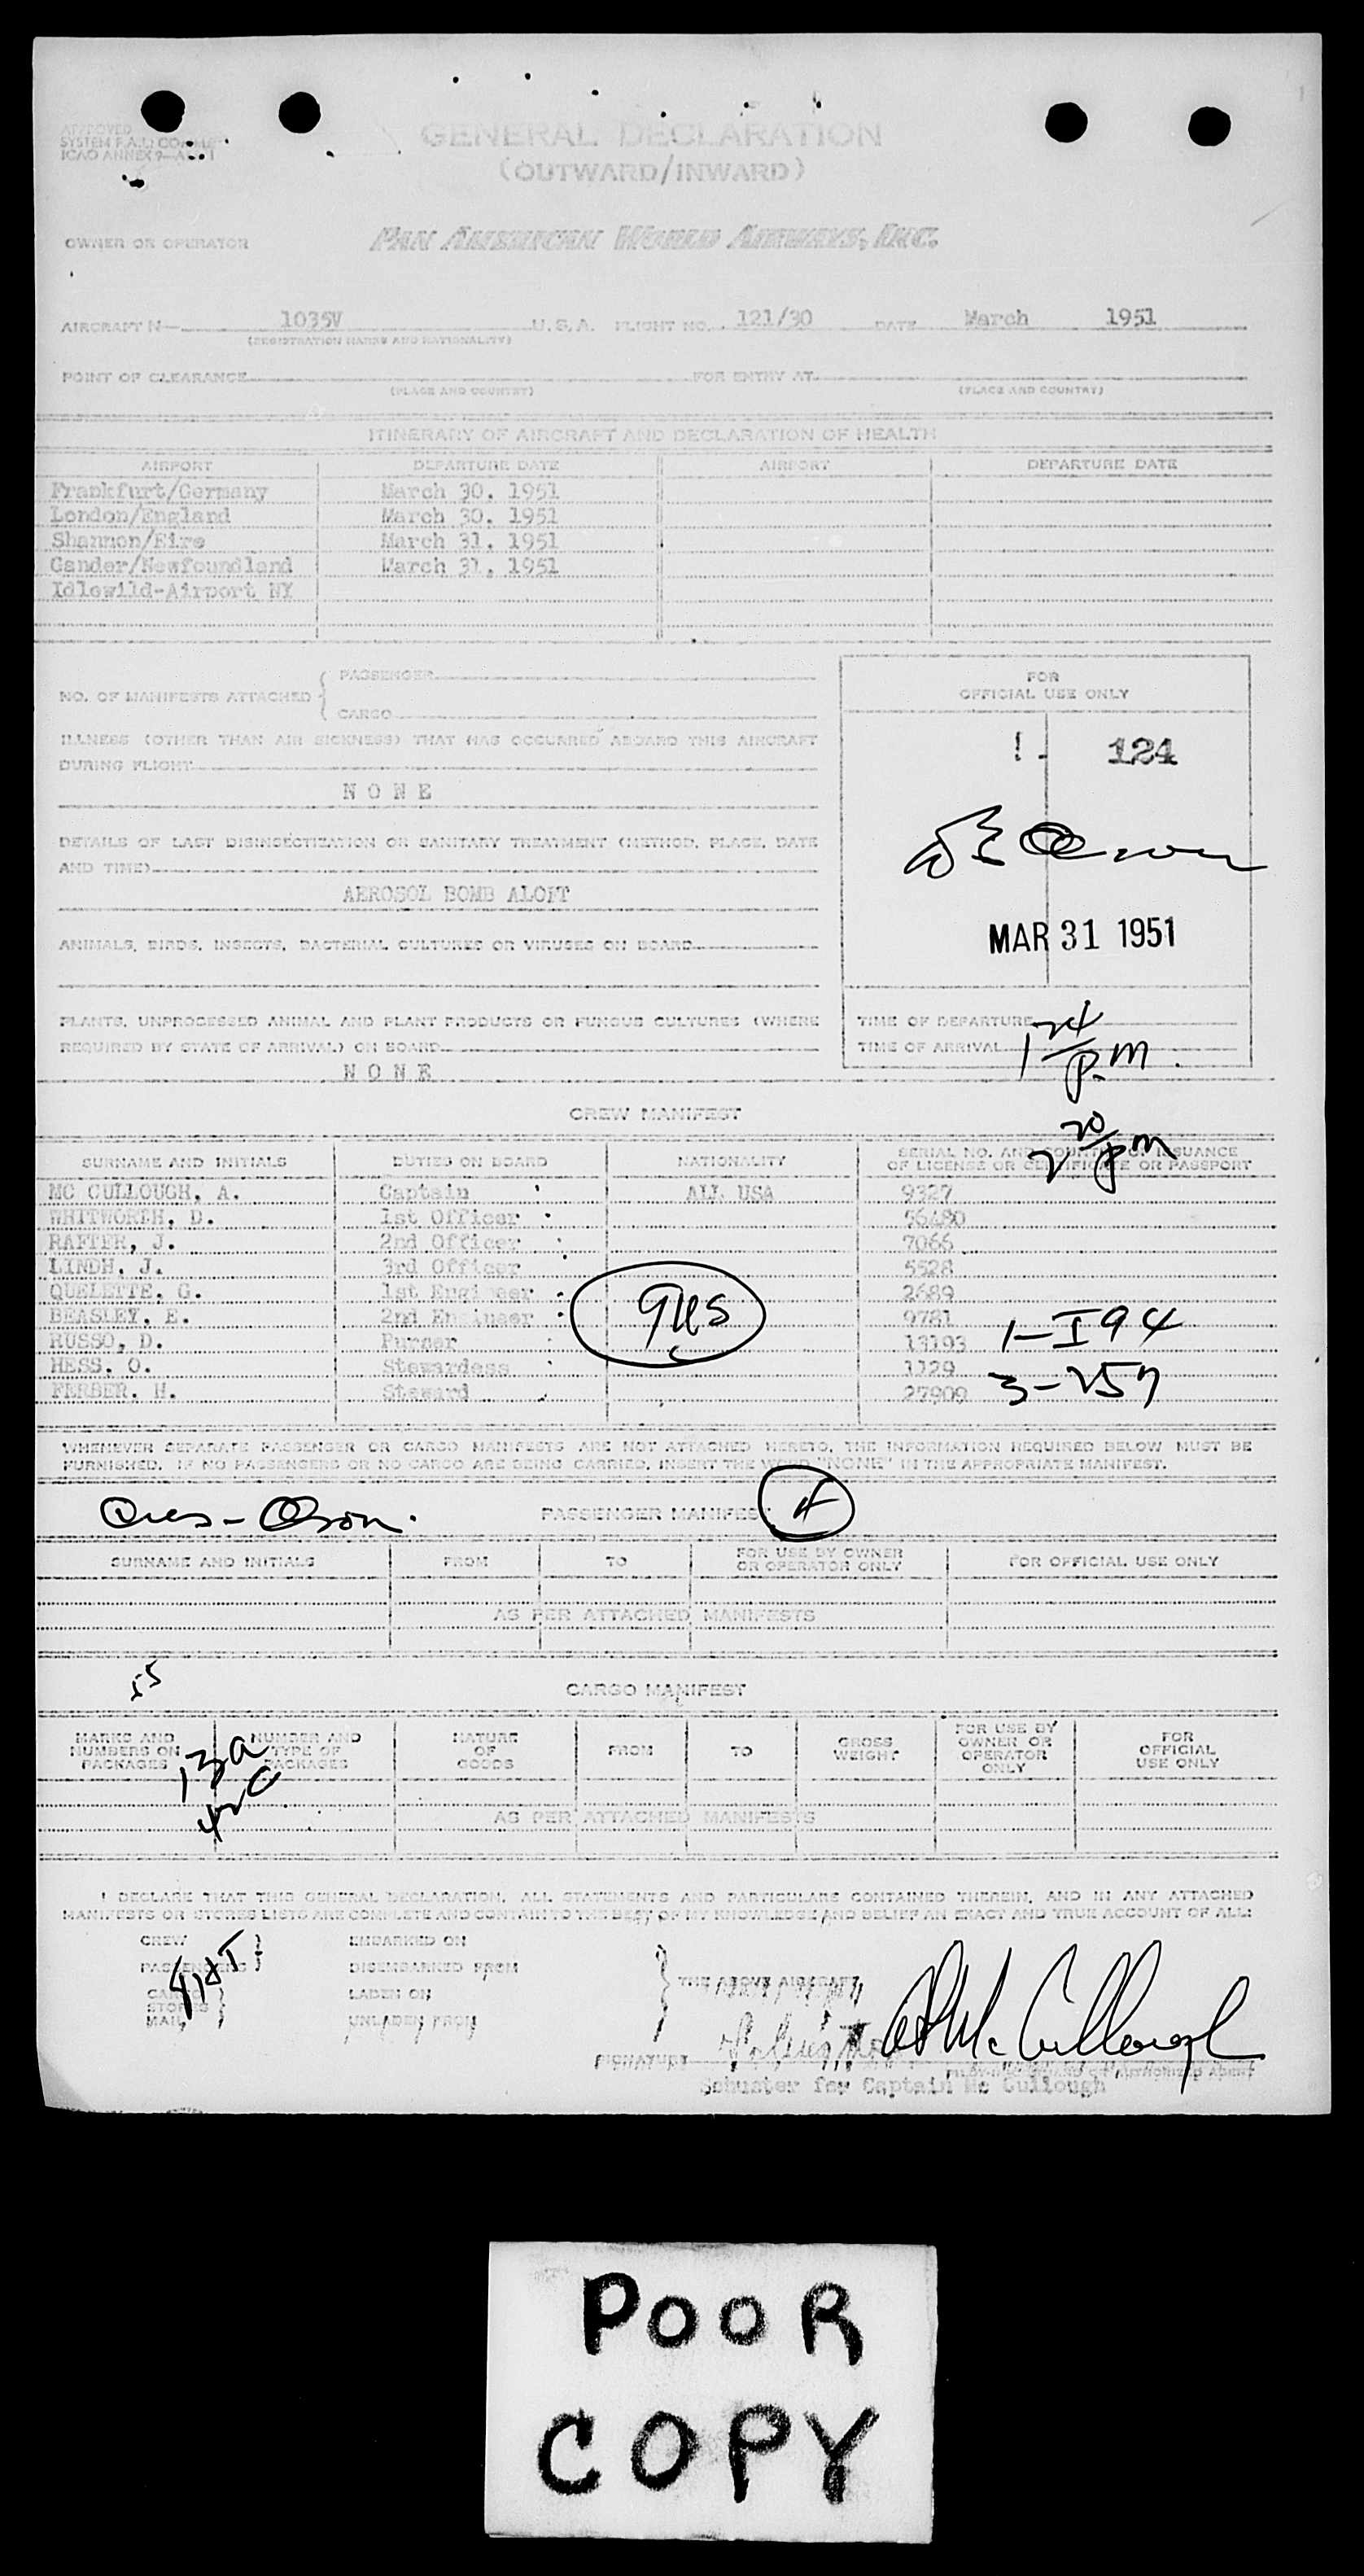 APPROVED
SYSTEM F.A.L. COM
ICAO ANNEX 9—A
GENERAL DECLARATION
(OUTWARD/INWARD)
OWNER OR OPERATOR PAN AMERICAN WORLD AIRWAYS, INC.
AIRCRAFT N— 1035V U.S.A. FLIGHT NO. 121/30 DATE March 1951
(REGISTRATION MARKS AND NATIONALITY)
POINT OF CLEARANCE FOR ENTRY AT
(PLACE AND COUNTRY) (PLACE AND COUNTRY)
ITINERARY OF AIRCRAFT AND DECLARATION OF HEALTH
AIRPORT DEPARTURE DATE AIRPORT DEPARTURE DATE
Frankfurt/Germany March 30, 1951
London/England March 30, 1951
Shannon/Eire March 31, 1951
Gander/Newfoundland March 31, 1951
Idlewild-Airport NY
NO. OF MANIFESTS ATTACHED { PASSENGER
CARGO
ILLNESS (OTHER THAN AIR SICKNESS) THAT HAS OCCURRED ABOARD THIS AIRCRAFT
DURING FLIGHT
NONE
DETAILS OF LAST DISINSECTIZATION OR SANITARY TREATMENT (METHOD, PLACE, DATE
AND TIME)
AEROSOL BOMB ALOFT
ANIMALS, BIRDS, INSECTS, BACTERIAL CULTURES OR VIRUSES ON BOARD
PLANTS, UNPROCESSED ANIMAL AND PLANT PRODUCTS OR FUNGUS CULTURES (WHERE
REQUIRED BY STATE OF ARRIVAL) ON BOARD
NONE
FOR
OFFICIAL USE ONLY
124
MAR 31 1951
TIME OF DEPARTURE
TIME OF ARRIVAL 1 24/P.M.
2 20/pm
CREW MANIFEST
SURNAME AND INITIALS DUTIES ON BOARD NATIONALITY SERIAL NO. AND COUNTRY OF ISSUANCE
OF LICENSE OR CERTIFICATE OR PASSPORT
MC CULLOUGH, A. Captain ALL USA 9327
WHITWORTH, D. 1st Officer 56480
RAFTER, J. 2nd Officer 7066
LINDH, J. 3rd Officer 5528
QUELETTE, G. 1st Engineer 2689
BEASLEY, E. 2nd Engineer 9781
RUSSO, D. Purser 13193
HESS, O. Stewardess 1129
FERBER, H. Steward 27909
9US
1-I94
3-257
WHENEVER SEPARATE PASSENGER OR CARGO MANIFESTS ARE NOT ATTACHED HERETO, THE INFORMATION REQUIRED BELOW MUST BE
FURNISHED. IF NO PASSENGERS OR NO CARGO ARE BEING CARRIED, INSERT THE WORD "NONE" IN THE APPROPRIATE MANIFEST.
Olson.
PASSENGER MANIFEST
SURNAME AND INITIALS FROM TO FOR USE BY OWNER
OR OPERATOR ONLY FOR OFFICIAL USE ONLY
AS PER ATTACHED MANIFESTS
CARGO MANIFEST
MARKS AND
NUMBERS ON
PACKAGES NUMBER AND
TYPE OF
PACKAGES NATURE
OF
GOODS FROM TO GROSS
WEIGHT FOR USE BY
OWNER OR
OPERATOR
ONLY FOR
OFFICIAL
USE ONLY
13a
42C
AS PER ATTACHED MANIFESTS
I DECLARE THAT THIS GENERAL DECLARATION, ALL STATEMENTS AND PARTICULARS CONTAINED THEREIN, AND IN ANY ATTACHED
MANIFESTS OR STORES LISTS ARE COMPLETE AND CONTAIN TO THE BEST OF MY KNOWLEDGE AND BELIEF AN EXACT AND TRUE ACCOUNT OF ALL:
CREW } EMBARKED ON
PASSENGERS } DISEMBARKED FROM
CARGO LADEN ON
STORES }
MAIL UNLADEN FROM
} THE ABOVE AIRCRAFT
SIGNATURE A McCullough
PILOT-IN-COMMAND OR AUTHORIZED AGENT
Schuster for Captain Mc Cullough
POOR
COPY